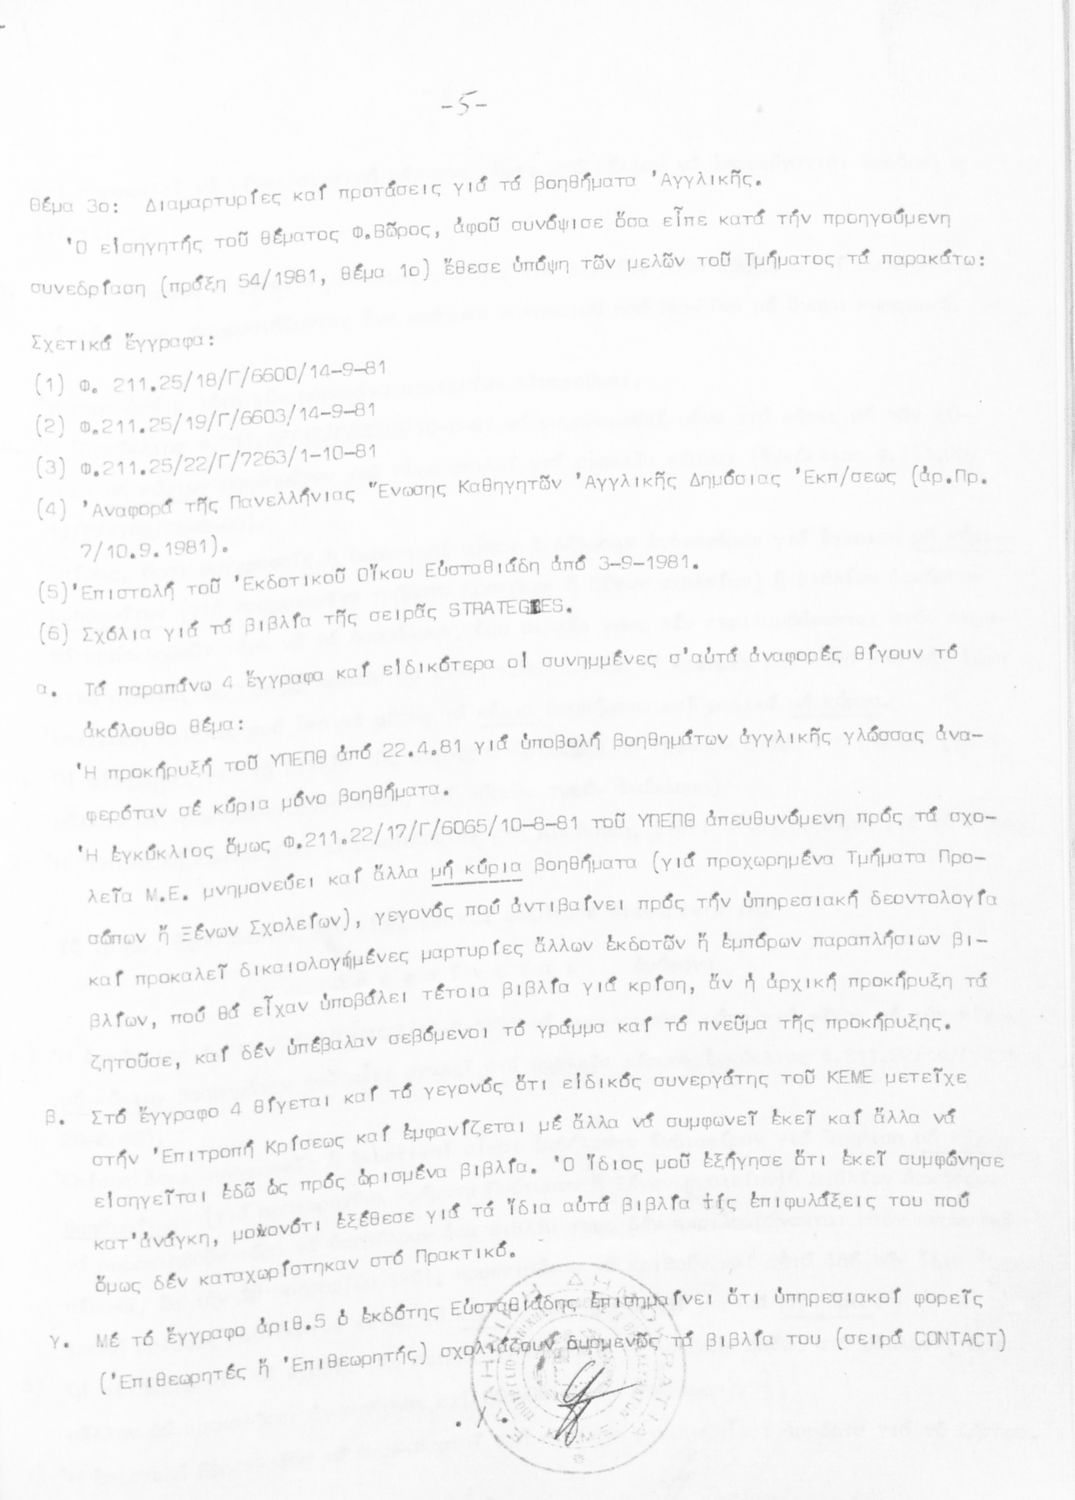 -5-
θέμα 3ο: Διαμαρτυρίες καί προτάσεις γιά τά βοηθήματα Ἀγγλικῆς.
Ὁ εἰσηγητής τοῦ θέματος Φ.Βῶρος, ἀφοῦ συνόψισε ὅσα εἶπε κατά τήν προηγούμενη
συνεδρίαση (πράξη 54/1981, θέμα 1ο) ἔθεσε ὑπόψη τῶν μελῶν τοῦ Τμήματος τά παρακάτω:
Σχετικά ἔγγραφα:
(1) Φ. 211.25/18/Γ/6600/14-9-81
(2) Φ.211.25/19/Γ/6603/14-9-81
(3) Φ.211.25/22/Γ/7263/1-10-81
(4) Ἀναφορά τῆς Πανελλήνιας Ἕνωσης Καθηγητῶν Ἀγγλικῆς Δημόσιας Ἐκπ/σεως (ἀρ.Πρ.
7/10.9.1981).
(5) Ἐπιστολή τοῦ Ἐκδοτικοῦ Οἴκου Εὐσταθιάδη ἀπό 3-9-1981.
(6) Σχόλια γιά τά βιβλία τῆς σειρᾶς STRATEGIES.
α. Τά παραπάνω 4 ἔγγραφα καί εἰδικότερα οἱ συνημμένες σ'αὐτά ἀναφορές θίγουν τό
ἀκόλουθο θέμα:
Ἡ προκήρυξή τοῦ ΥΠΕΠΘ ἀπό 22.4.81 γιά ὑποβολή βοηθημάτων ἀγγλικῆς γλώσσας ἀνα-
φερόταν σέ κύρια μόνο βοηθήματα.
Ἡ ἐγκύκλιος ὅμως Φ.211.22/17/Γ/6065/10-8-81 τοῦ ΥΠΕΠΘ ἀπευθυνόμενη πρός τά σχο-
λεῖα Μ.Ε. μνημονεύει καί ἄλλα μή κύρια βοηθήματα (γιά προχωρημένα Τμήματα Προ-
σώπων ἤ Ξένων Σχολείων), γεγονός πού ἀντιβαίνει πρός τήν ὑπηρεσιακή δεοντολογία
καί προκαλεῖ δικαιολογημένες μαρτυρίες ἄλλων ἐκδοτῶν ἤ ἐμπόρων παραπλήσιων βι-
βλίων, πού θά εἶχαν ὑποβάλει τέτοια βιβλία γιά κρίση, ἄν ἡ ἀρχική προκήρυξη τά
ζητοῦσε, καί δέν ὑπέβαλαν σεβόμενοι τό γράμμα καί τό πνεῦμα τῆς προκήρυξης.
β. Στό ἔγγραφο 4 θίγεται καί τό γεγονός ὅτι εἰδικός συνεργάτης τοῦ ΚΕΜΕ μετεῖχε
στήν Ἐπιτροπή Κρίσεως καί ἐμφανίζεται μέ ἄλλα νά συμφωνεῖ ἐκεῖ καί ἄλλα νά
εἰσηγεῖται ἐδῶ ὡς πρός ὡρισμένα βιβλία. Ὁ ἴδιος μοῦ ἐξήγησε ὅτι ἐκεῖ συμφώνησε
κατ'ἀνάγκη, μολονότι ἐξέθεσε γιά τά ἴδια αὐτά βιβλία τίς ἐπιφυλάξεις του πού
ὅμως δέν καταχωρίστηκαν στό Πρακτικό.
γ. Μέ τό ἔγγραφο ἀριθ.5 ὁ ἐκδότης Εὐσταθιάδης ἐπισημαίνει ὅτι ὑπηρεσιακοί φορεῖς
(Ἐπιθεωρητές ἤ Ἐπιθεωρητής) σχολιάζουν δυσμενῶς τά βιβλία του (σειρά CONTACT)
./.
ΕΛΛΗΝΙΚΗ ΔΗΜΟΚΡΑΤΙΑ